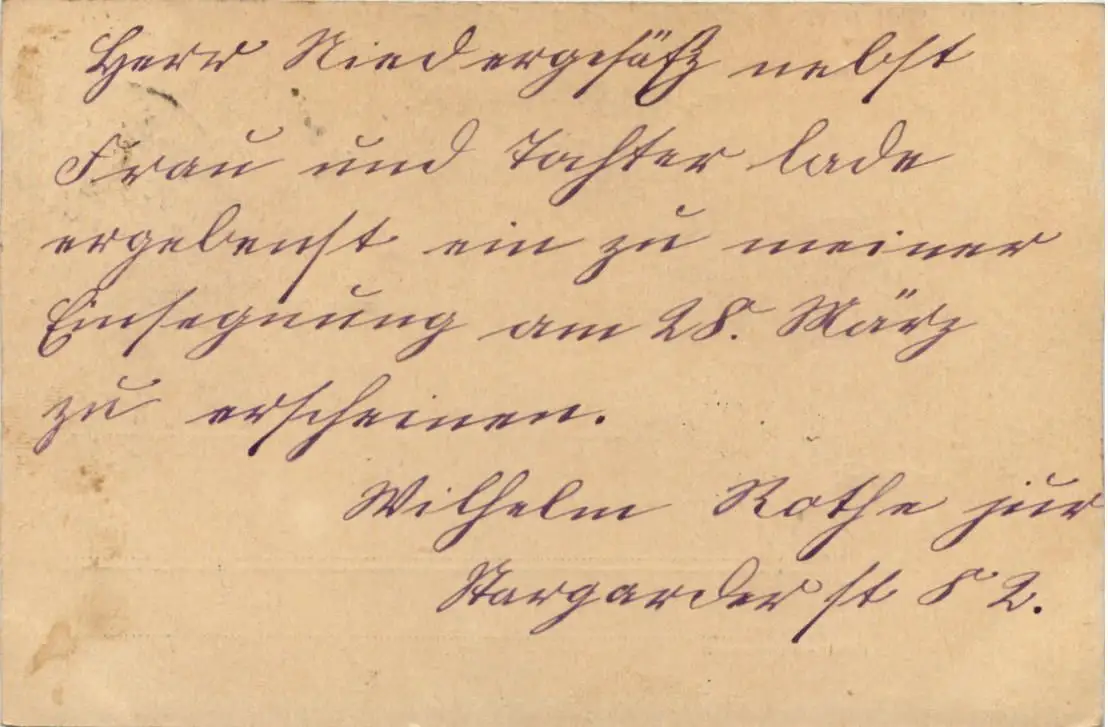 Herr Niedergesäß nebst
Frau und Tochter lade
ergebenst ein zu meiner
Einsegnung am 28. März
zu erscheinen.
Wilhelm Rothe jur
Stargarder st 82.